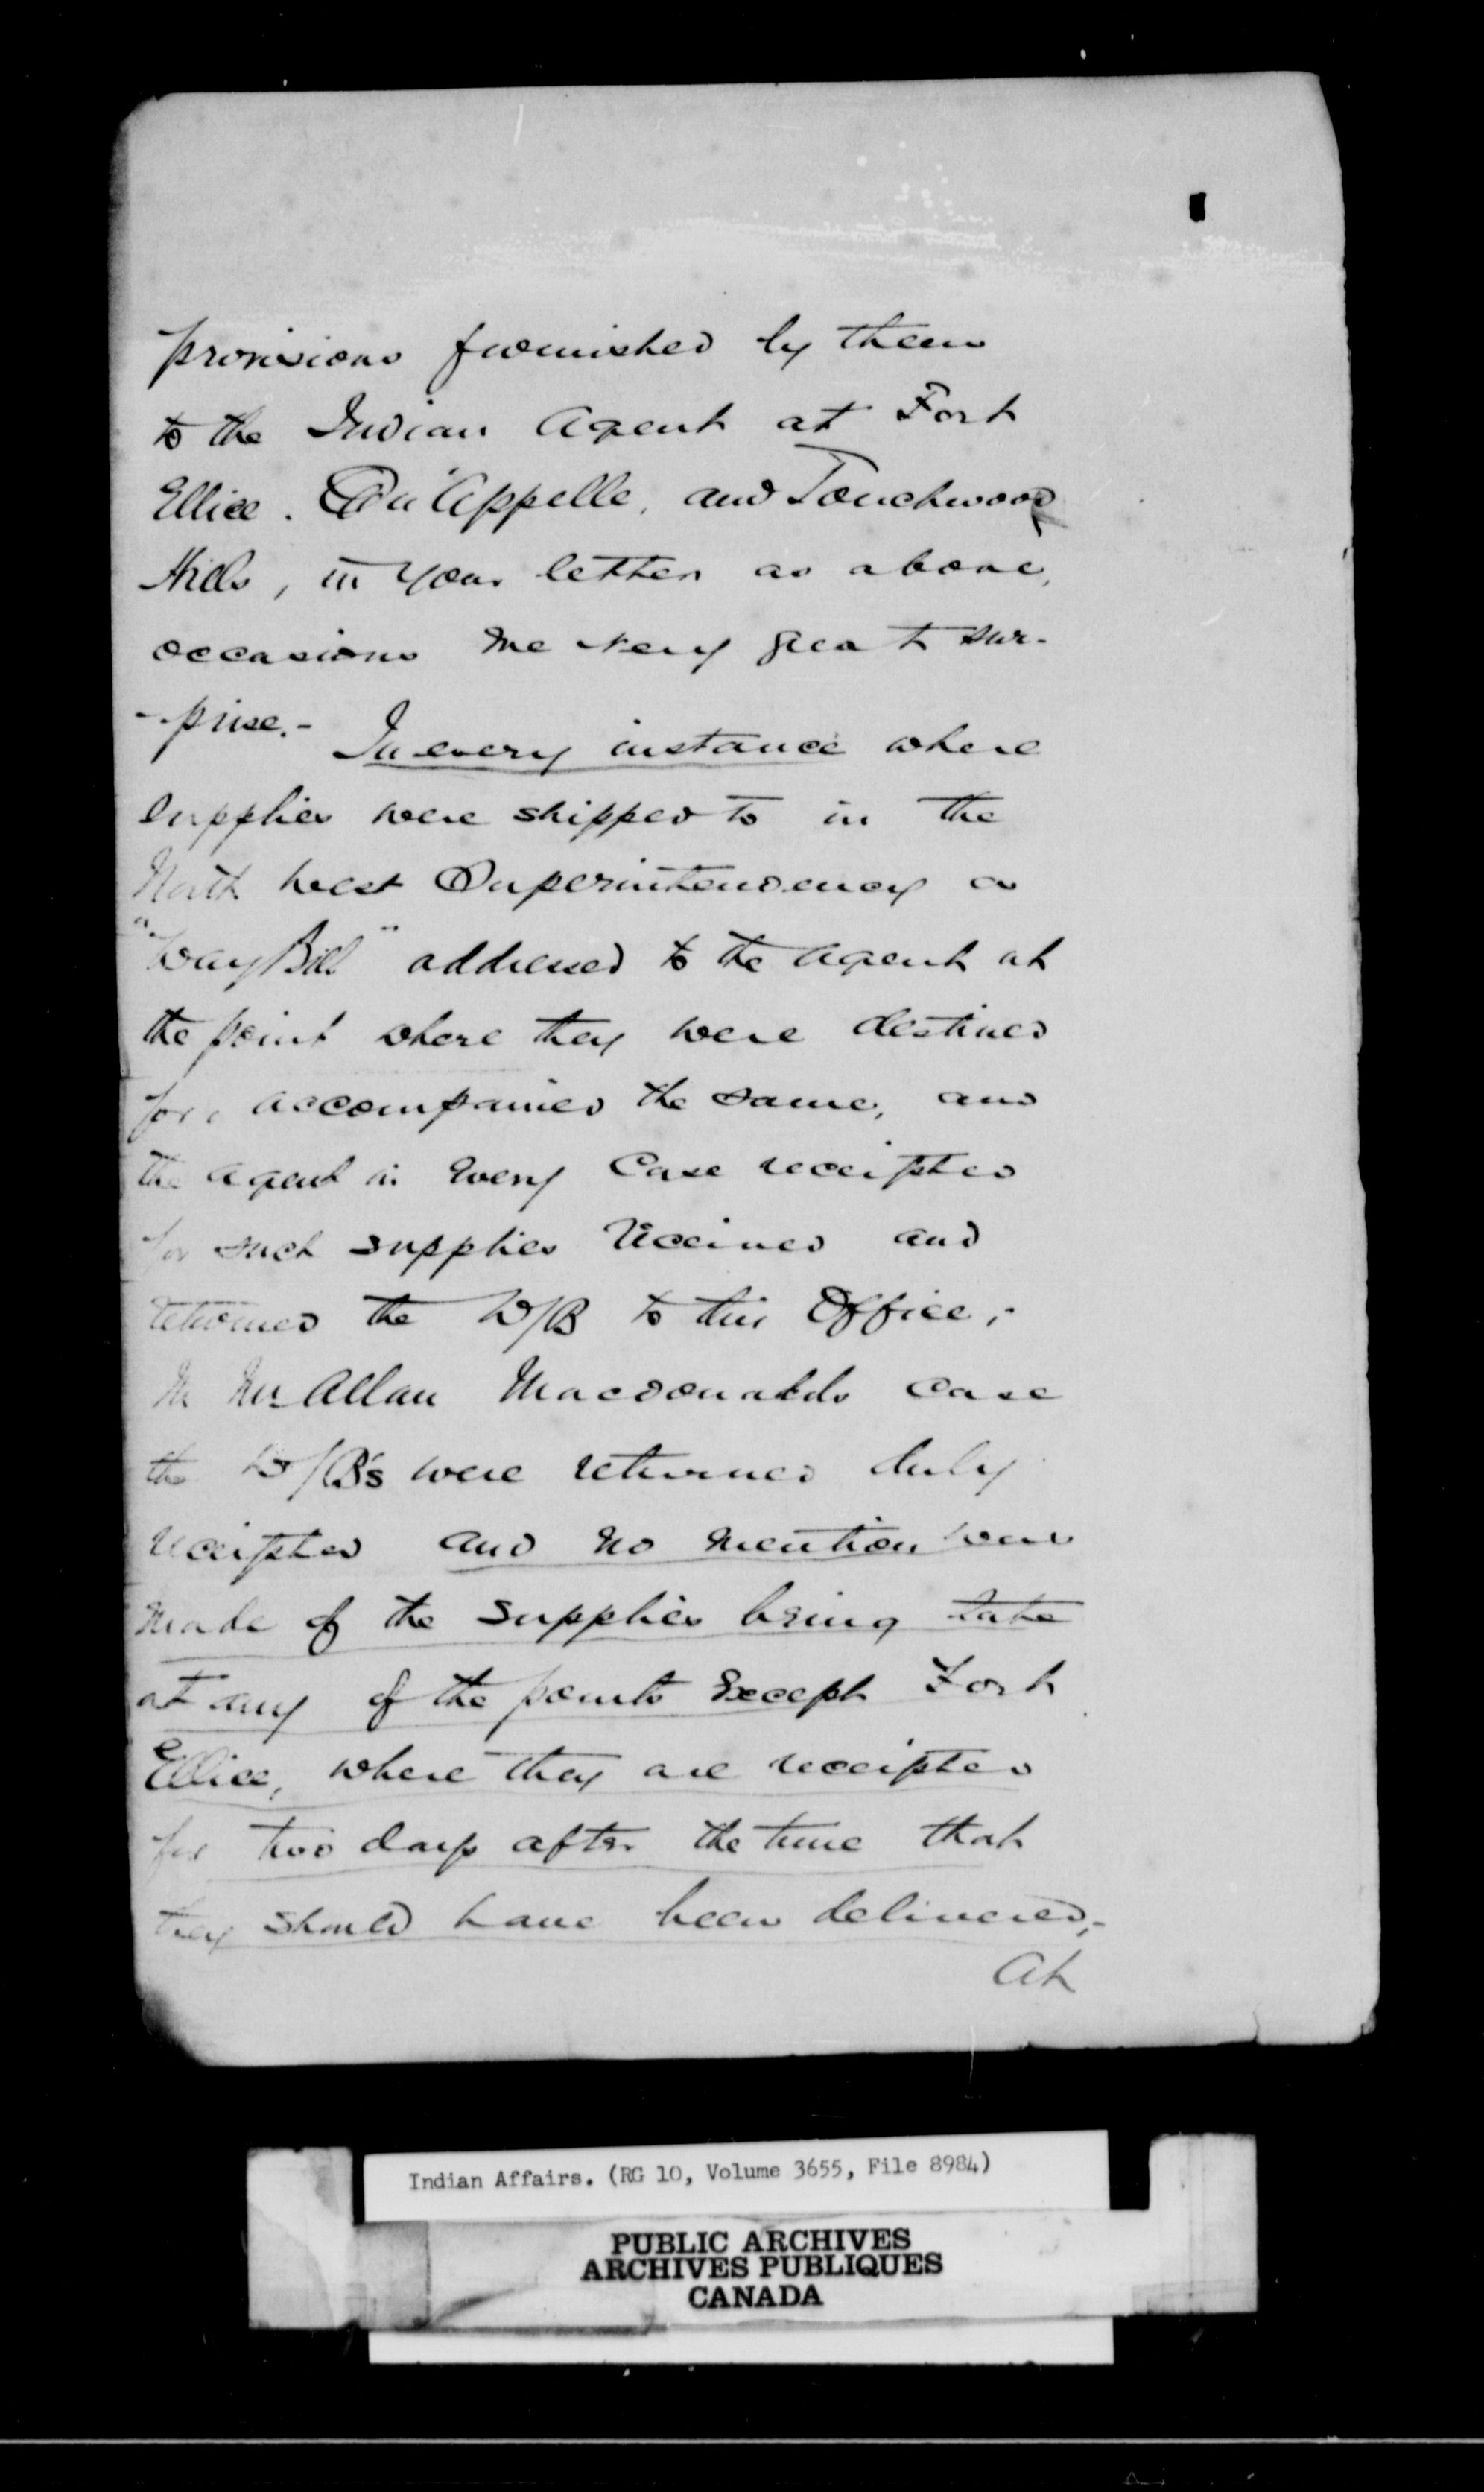 provisions furnished by them
to the Indian Agent at Fort
Ellice. Qu'Appelle, and Touchwood
Hills, in your letter as above,
occasions me very great sur-
-prise.- In every instance where
supplies were shipped to in the
North West Superintendency a
"Way Bill" addressed to the Agent at
the point where they were destined
for, accompanied the same, and
the Agent in every case receipted
for such supplies received and
returned the W/B to this Office,-
In Mr Allan Macdonalds case
the W/B's were returned duly
receipted and no mention was
made of the supplies being late
at any of the points except Fort
Ellice, where they are receipted
for two days after the time that
they should have been delivered,-
At
Indian Affairs. (RG 10, Volume 3655, File 8984)
PUBLIC ARCHIVES
ARCHIVES PUBLIQUES
CANADA